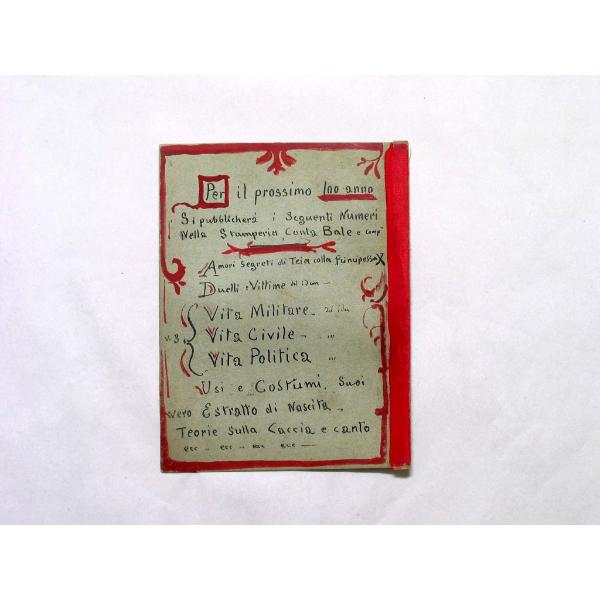 Per il prossimo 100 anno
Si pubblicherà i Seguenti Numeri
Nella Stamperia Conta Bale e comp
Amori Segreti di Teia colla principessa X
Duelli e Vittime del
Vita Militare
Vita Civile "
Vita Politica "
Usi e Costumi Suoi
vero Estratto di Nascita
Teorie sulla Caccia e canto
ecc .. ecc .. ecc ecc